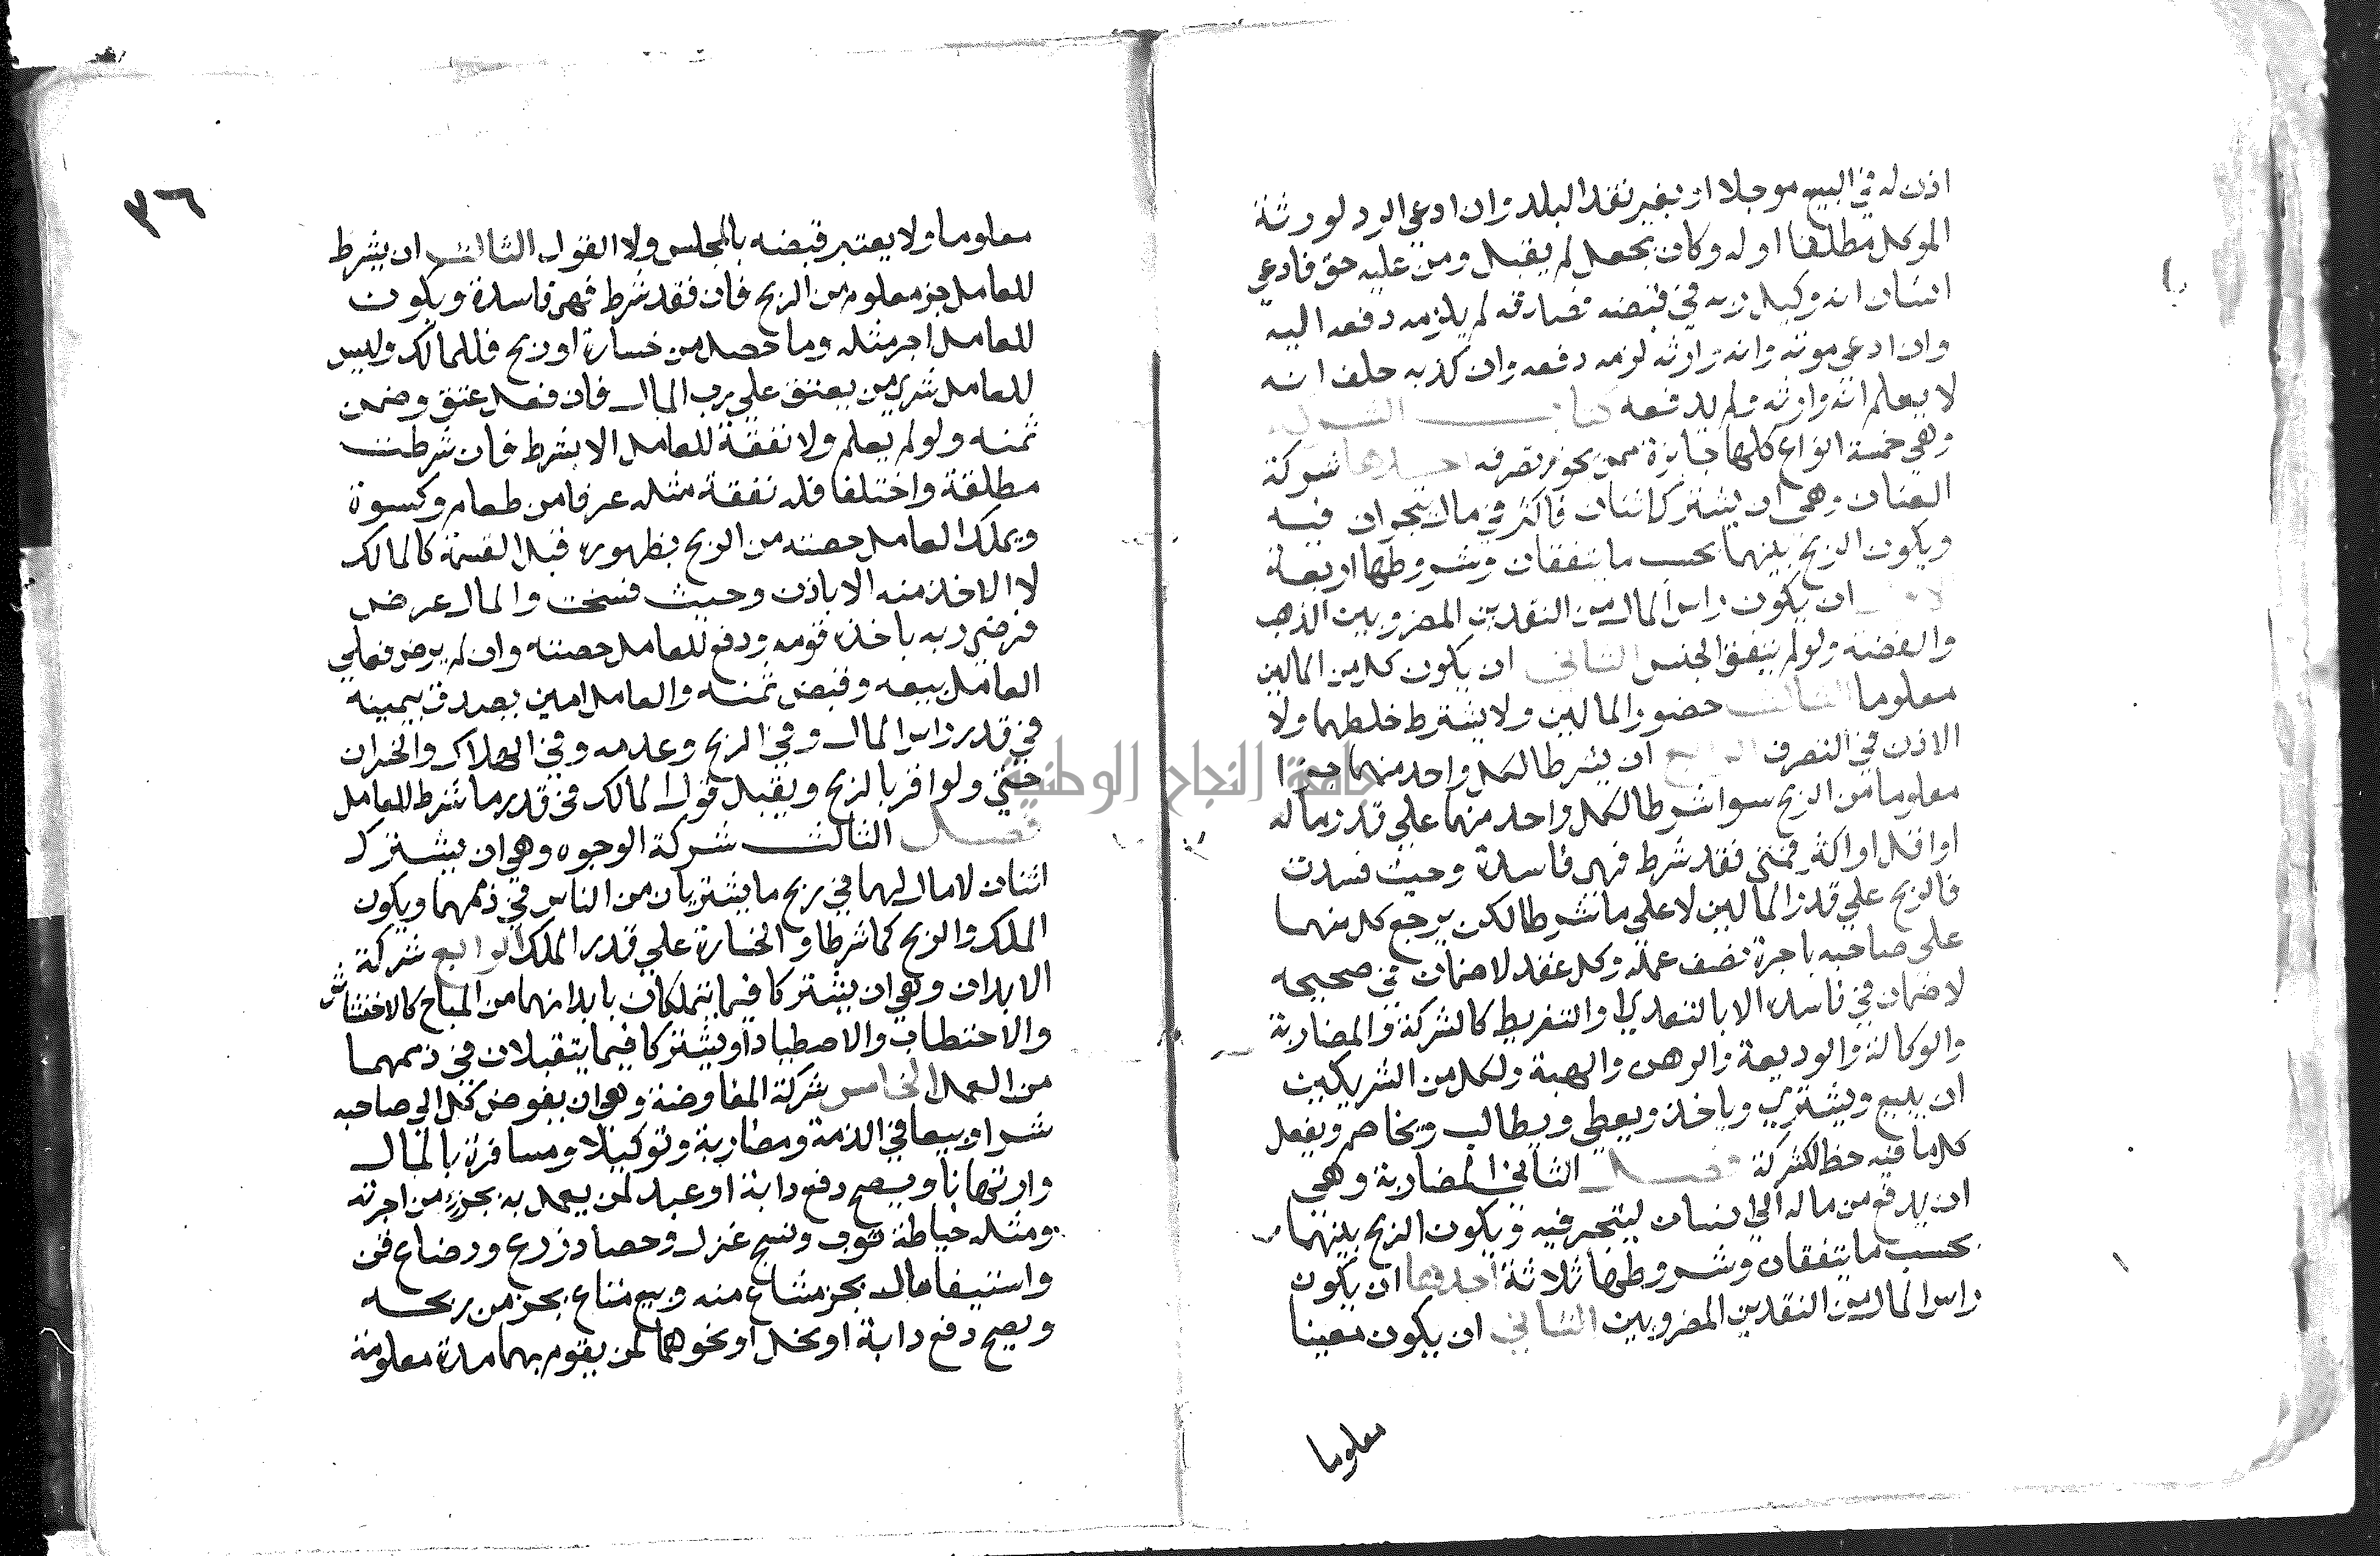 اذن له في البيع موجلا او بغير نقد البلد وان ادعي الرد لورثة
الموكل مطلقا او له وكان بجعل لم يقبل ومن عليه حق فادعي
انسان انه وكيل ربه في قبضه فصادقه لم يلزمه دفعه اليه
وان ادعي موته وانه وارثه لزمه دفعه وان كذبه حلف انه
لا يعلم انه وارثه ولم يدفعه كتاب الشركه
وهي خمسة انواع كلها جايزة ممن يجوز تصرفه احدها شركة
العنان وهي ان يشترك اثنان فاكثر في مال يتجران فيه
ويكون الربح بينهما بحسب ما يتفقان وشروطها اربعة
ان يكون راس المال من النقدين المضروبين الذهب
والفضة ولو لم يتفق الجنس الثاني ان يكون كل من المالين
معلوما الثالث حضور المالين ولا يشترط خلطهما ولا
الاذن في التصرف الرابع ان يشرطا لكل واحد منهما جزا
معلوما من الربح سوا شرطا لكل واحد منهما علي قدر ماله
او اقل او اكثر فمتى فقد شرط فهي فاسدة وحيث فسدت
فالربح علي قدر المالين لا علي ما شرطا لكن يرجع كل منهما
على صاحبه باجرة نصف عمله وكل عقد لا ضمان في صحيحه
لا ضمان في فاسده الا بالتعدي او التفريط كالشركة والمضاربة
والوكالة والوديعة والرهن والهبة ولكل من الشريكين
ان يبيع ويشتري وياخذ ويعطي ويطالب ويخاصم ويفعل
كل ما فيه حظ للشركة فصل الثاني المضاربة وهي
ان يدفع من ماله الي انسان ليتجر فيه ويكون الربح بينهما
بحسب ما يتفقان وشروطها ثلاثة احدها ان يكون
راس المال من النقدين المضروبين الثاني ان يكون معينا
معلوما
٣٦
معلوما ولا يعتبر قبضه بالمجلس ولا القول الثالث ان يشرط
للعامل جز معلوم من الربح فان فقد شرط فهي فاسدة ويكون
للعامل اجر مثله وما حصل من خسارة او ربح فللمالك وليس
للعامل شري من يعتق علي رب المال فان فعل عتق وضمن
ثمنه ولو لم يعلم ولا نفقة للعامل الا بشرط فان شرطت
مطلقة واختلفا فله نفقة مثله عرفا من طعام وكسوة
ويملك العامل حصته من الربح بظهوره قبل القسمة كالمالك
لا الاخذ منه الا باذن وحيث فسخت والمال عرض
فرضي ربه باخذه قومه ودفع للعامل حصته وان لم يرض فعلي
العامل بيعه وقبض ثمنه والعامل امين يصدق بيمينه
في قدر راس المال وفي الربح وعدمه وفي الهلاك والخسران
حتي ولو اقر بالربح ويقبل قول المالك في قدر ما شرط للعامل
فصل الثالث شركة الوجوه وهي ان يشترك
اثنان لا مال لهما في ربح ما يشتريان من الناس في ذممهما ويكون
الملك والربح كما شرطا والخسارة علي قدر الملك الرابع شركة
الابدان وهي ان يشتركا فيما يتملكان بابدانهما من المباح كالاحتشاش
والاحتطاب والاصطياد او يشتركا فيما يتقبلان في ذممهما
من العمل الخامس شركة المفاوضة وهو ان يفوض كل الي صاحبه
شرا وبيعا في الذمة ومضاربة وتوكيلا ومسافرة بالمال
وارتهانا ويصح دفع دابة او عبد لمن يعمل به بجزء من اجرته
ومثله خياطة ثوب ونسج غزل وحصاد زرع ورضاع قن
واستيفا مال بجز مشاع منه وبيع متاع بجز من ربحه
ويصح دفع دابة او نخل او نحوهما لمن يقوم بهما مدة معلومة
جامعة النجاح الوطنية